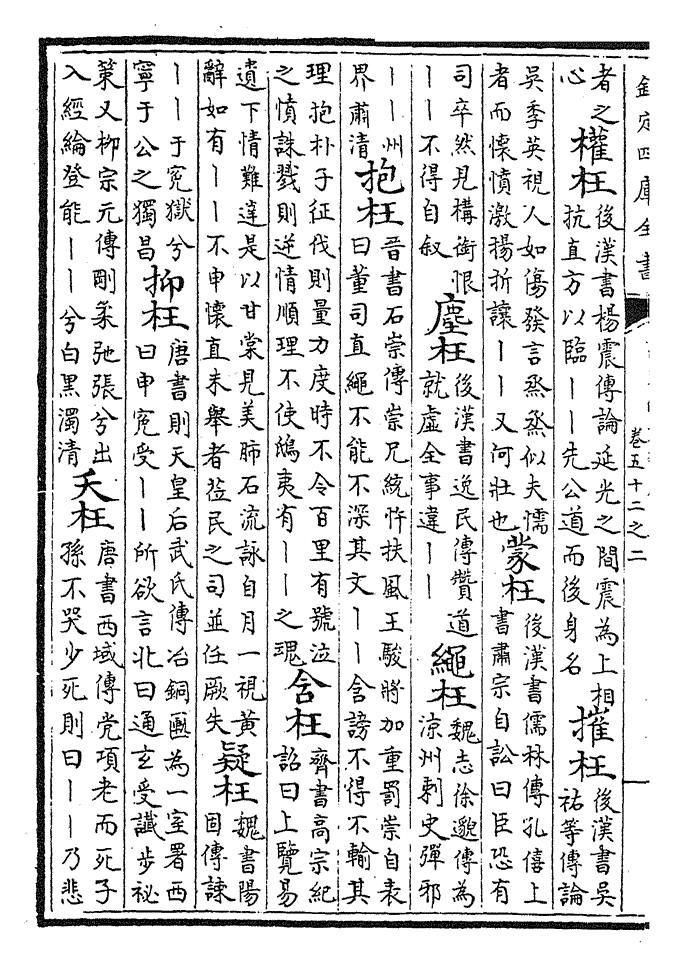 欽定四庫全書
卷五十二之二
者之
心
權枉
後漢書楊震傳論延光之間震為上相
抗直方以臨丨丨先公道而後身名
摧枉
後漢書吳
祐等傳論
吳季英視人如傷發言烝烝似夫懦
者而懷憤激揚折讓丨丨又何壯也
蒙枉
後漢書儒林傳孔僖上
書肅宗自訟曰臣恐有
司卒然見構銜恨
丨丨不得自叙
塵枉
後漢書逸民傳贊道
就虛全事違丨丨
繩枉
魏志徐邈傳為
涼州刺史彈邪
丨丨州
界肅清
抱枉
晉書石崇傳崇兄統忤扶風王駿將加重罰崇自表
曰董司直繩不能不深其文丨丨含謗不得不輸其
理抱朴子征伐則量力度時不令百里有號泣
之憤誅戮則逆情順理不使鴟夷有丨丨之魂
含枉
齊書高宗紀
詔曰上覽易
遺下情難達是以甘棠見美肺石流詠自月一視黃
辭如有丨丨不申懷直未舉者莅民之司並任厥失
疑枉
魏書陽
固傳諫
丨丨于寃獄兮
寧于公之獨昌
抑枉
唐書則天皇后武氏傳冶銅匭為一室署西
曰申寃受丨丨所欲言北曰通玄受讖步秘
策又柳宗元傳剛柔弛張兮出
入經綸登能丨丨兮白黑濁清
夭枉
唐書西域傳党項老而死子
孫不哭少死則曰丨丨乃悲